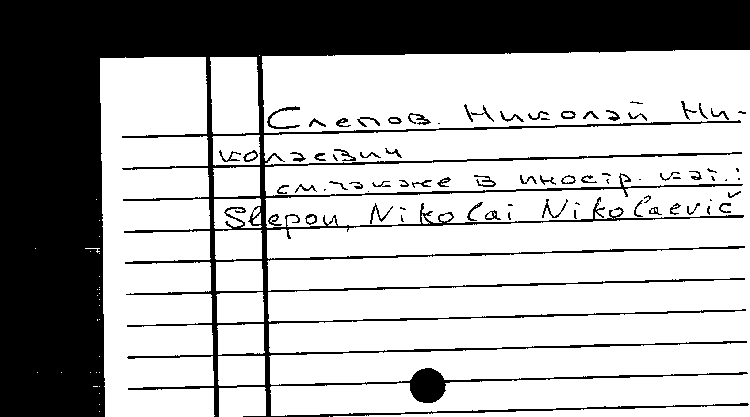 Слепов Николай Ни-
колаевич
см. также в иностр. кат.:
Slepou, Nikolai Nikolaevič